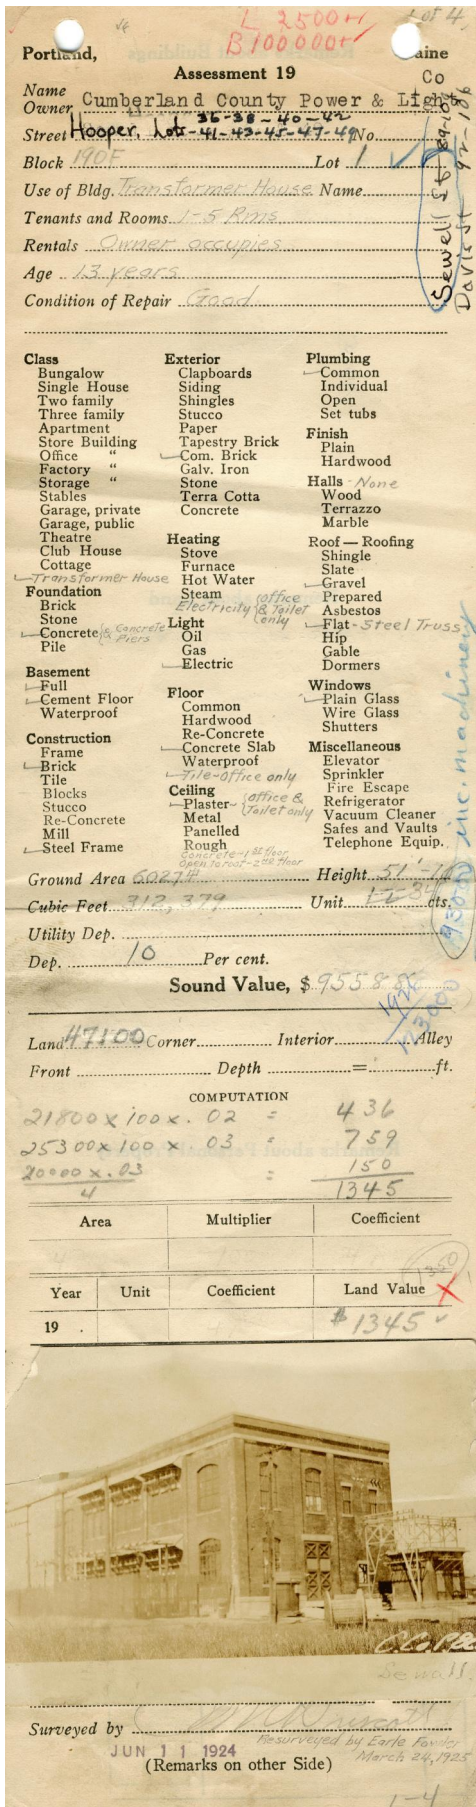 L 2500+
Lot 4
B 100000+
Portland, Maine
Assessment 19
Name
Owner Cumberland County Power & Light Co
36-38-40-42
Street Hooper, Lots-41-43-45-47-49 No.
Sewell St 89-109
Davis St 92-186
Block 190F Lot 1
Use of Bldg. Transformer House Name
Tenants and Rooms 1-5 Rms
Rentals Owner occupies
Age 13 years
Condition of Repair Good
Class
Bungalow
Single House
Two family
Three family
Apartment
Store Building
Office "
Factory "
Storage "
Stables
Garage, private
Garage, public
Theatre
Club House
Cottage
Transformer House
Foundation
Brick
Stone
Concrete & Concrete Piers
Pile
Basement
Full
Cement Floor
Waterproof
Construction
Frame
Brick
Tile
Blocks
Stucco
Re-Concrete
Mill
Steel Frame
Exterior
Clapboards
Siding
Shingles
Stucco
Paper
Tapestry Brick
Com. Brick
Galv. Iron
Stone
Terra Cotta
Concrete
Heating
Stove
Furnace
Hot Water
Steam
Electricity office & Toilet only
Light
Oil
Gas
Electric
Floor
Common
Hardwood
Re-Concrete
Concrete Slab
Waterproof
Tile-Office only
Ceiling
Plaster- office & Toilet only
Metal
Panelled
Rough
Concrete-1st floor
Open to roof-2nd floor
Plumbing
Common
Individual
Open
Set tubs
Finish
Plain
Hardwood
Halls - None
Wood
Terrazzo
Marble
Roof — Roofing
Shingle
Slate
Gravel
Prepared
Asbestos
Flat - Steel Truss
Hip
Gable
Dormers
Windows
Plain Glass
Wire Glass
Shutters
Miscellaneous
Elevator
Sprinkler
Fire Escape
Refrigerator
Vacuum Cleaner
Safes and Vaults
Telephone Equip.
inc. machinery
Ground Area 6027# Height 51'-
Cubic Feet 312,379 Unit 34 cts.
Utility Dep.
Dep. 10 Per cent.
Sound Value, $ 95588
1926
123000
Land 47100 Corner Interior Alley
Front Depth = ft.
COMPUTATION
21800 x 100 x .02 = 436
25300 x 100 x .03 = 759
20000 x .03 = 150
4
1345
Area Multiplier Coefficient
1350
Year Unit Coefficient Land Value X
19 $ 1345
C.Co.P.&L
Sewall
Surveyed by
JUN 11 1924
Resurveyed by Earle Fowler
March 24, 1925
(Remarks on other Side)
1-4